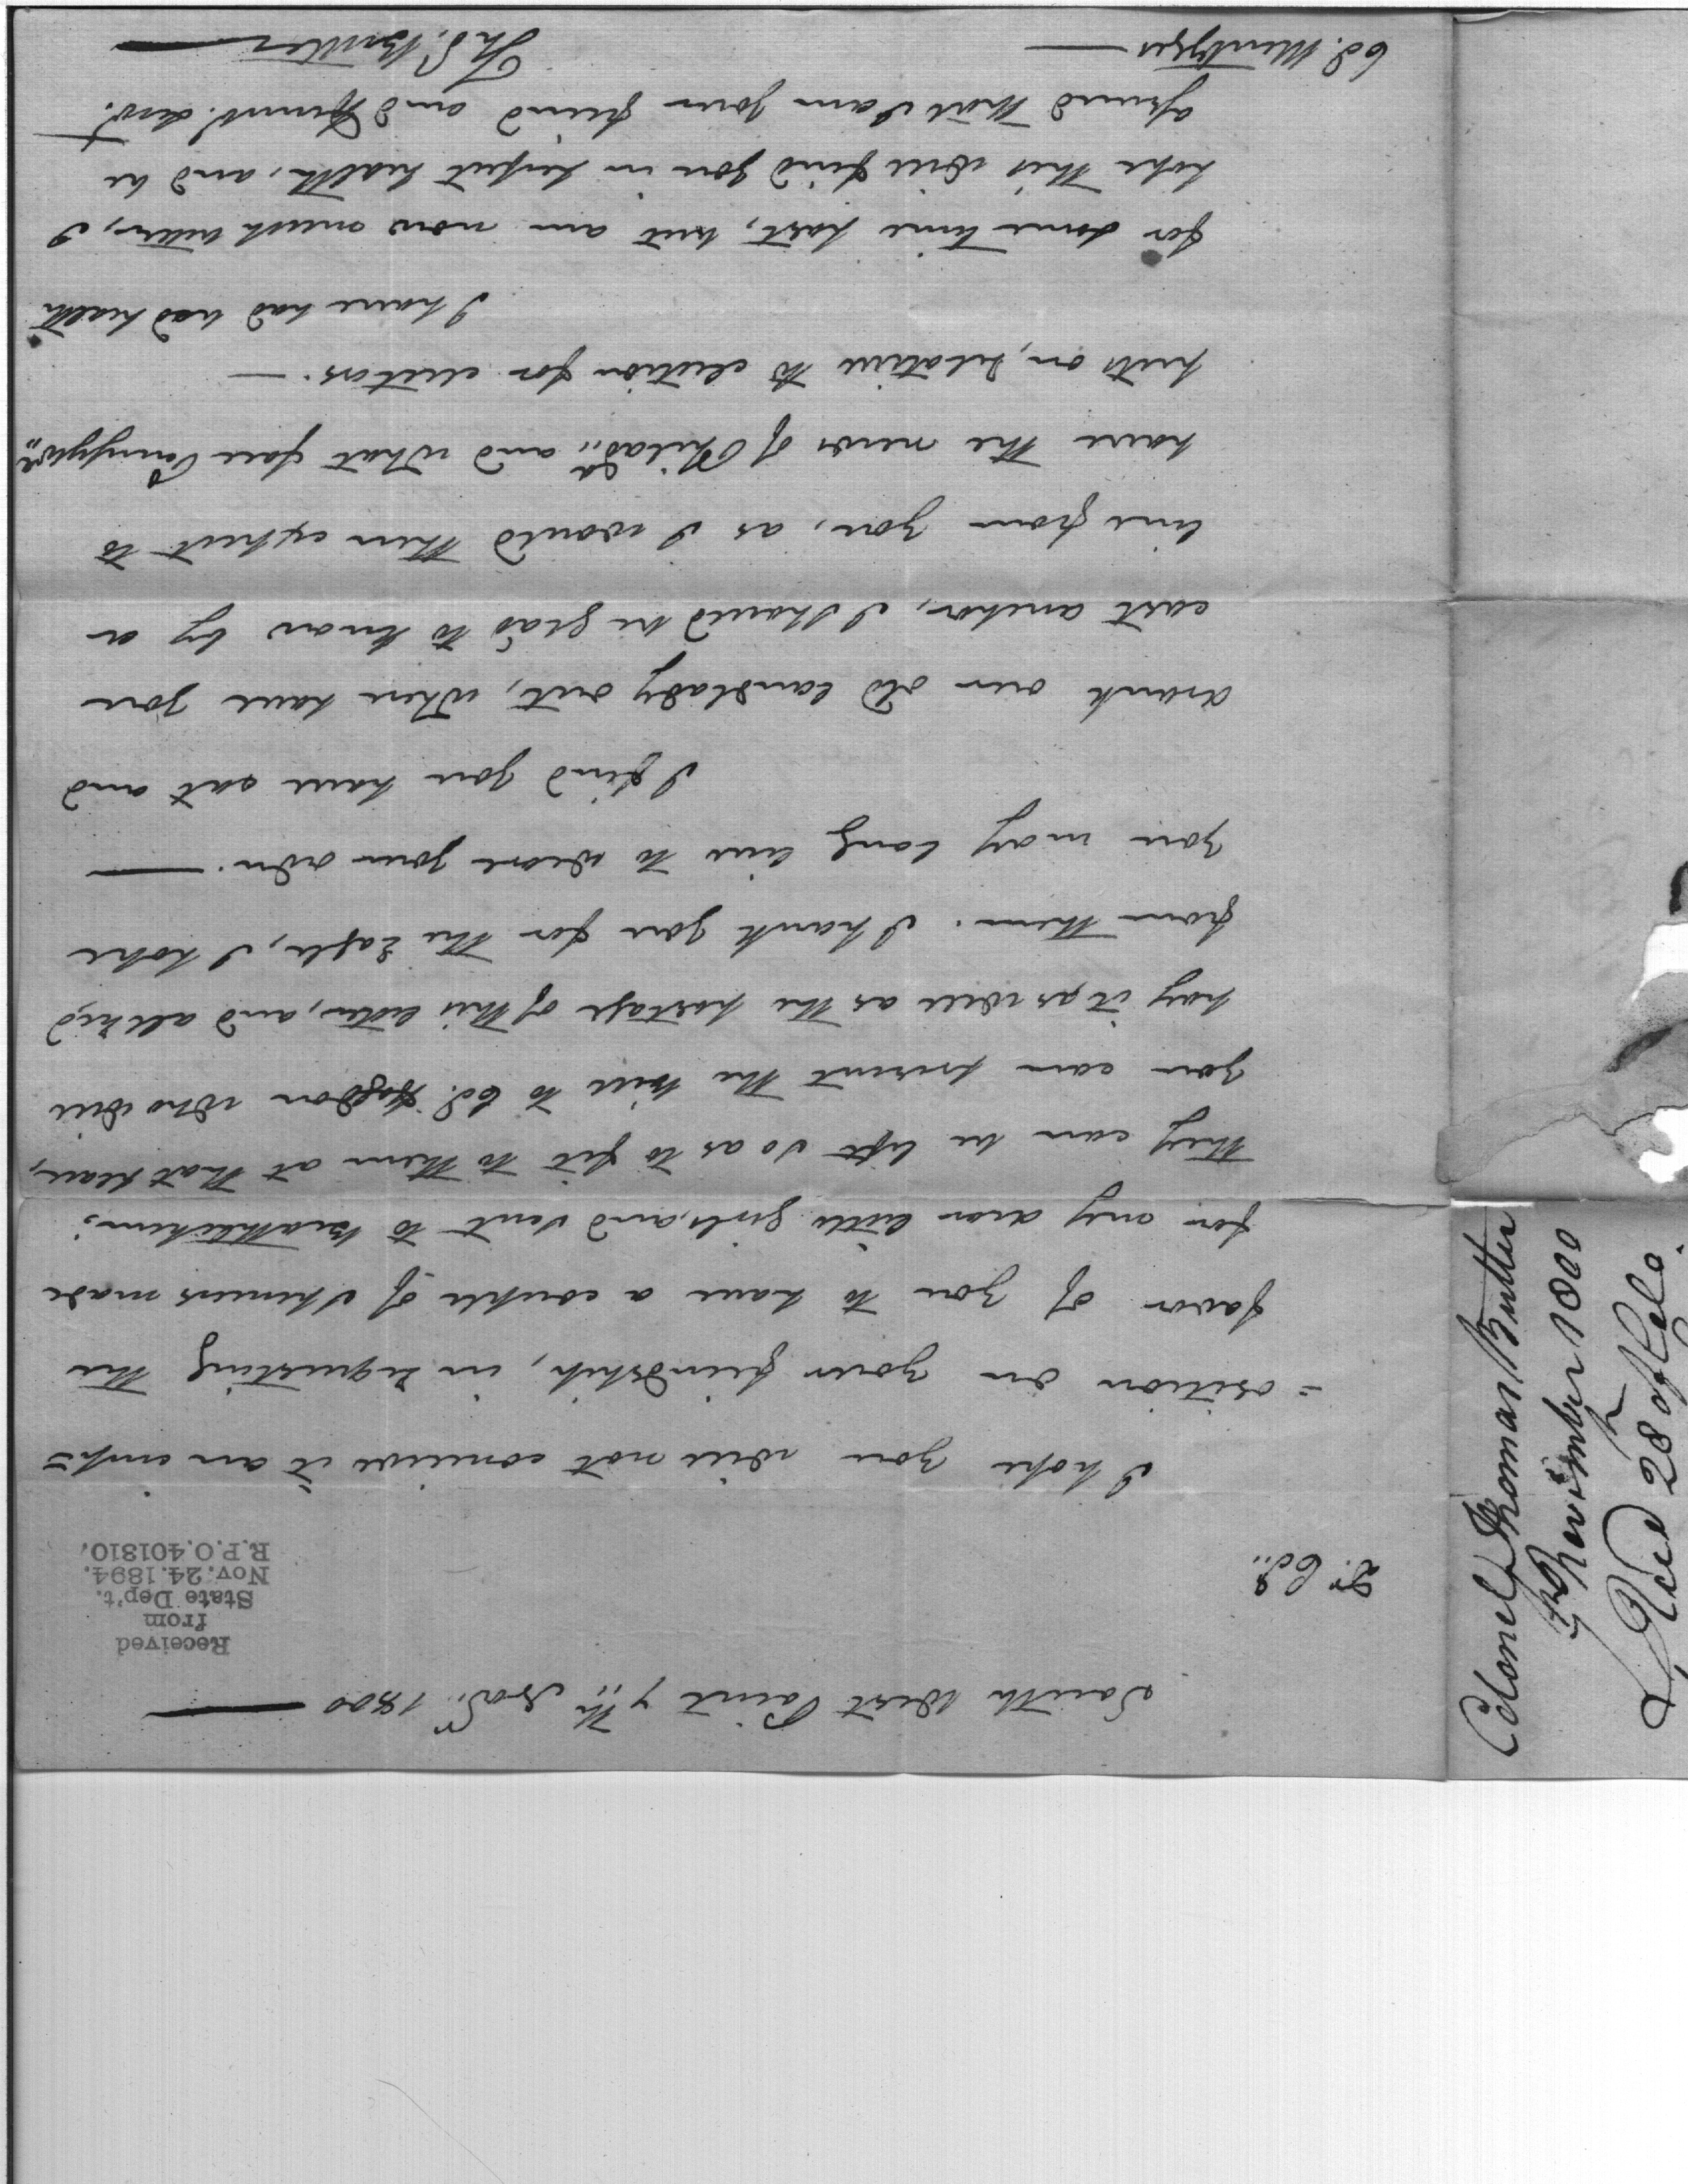 South West Point 7th.. Novr.. 1800
Received
from
State Dep't.
Nov. 24. 1894.
R.P.O. 401810.
Dr. Col..
I hope you will not conceive it an imp=
=osition on your friendship, in requesting the
favor of you to have a couple of skimers made
for my dear little girls, and sent to Beathlehem;
they can be left so as to fit to them at that place,
you can present the bill to Col. Hogdon who will
pay it, as well as the postage of this letter, and all red
from them. I thank you for the Eagle, I hope
you may long live to wear your own.
I find you have eat and
drank our old landlady out, where have you
cast anchor, I should be glad to know by a
line from you, as I would then expect to
have the news of Philada.. and what face Pennsylva..
puts on, relative to election for electors.
I have had bad health
for some time past, but am now much better, I
hope this will find you in perfect health, and be
assured that I am your friend and Humb. Servt.
Ths. Butler
Col. Mentzges
Colonel Thomas Butler
7th November 1800
Recd 28th of Delo.